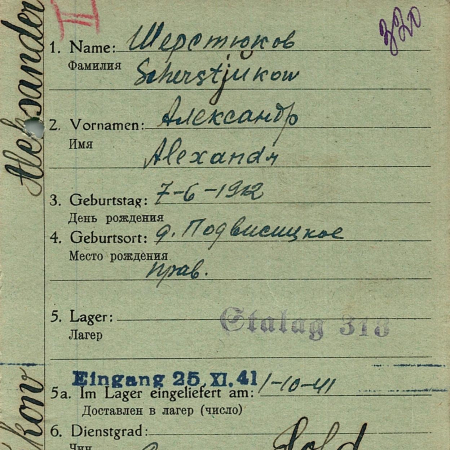 II
320
1. Name: Шерстюков
Фамилия
Scherstjukow
2. Vornamen: Александр
Имя
Alexandr
3. Geburtstag: 7-6-1912
День рождения
4. Geburtsort: д. Подвисицкое
Место рождения
прав.
5. Lager: Stalag 313
Лагер
Eingang 25. XI. 41
5a. Im Lager eingeliefert am: 1-10-41
Доставлен в лагер (число)
6. Dienstgrad: Sold
Чин
Aleksander
kow